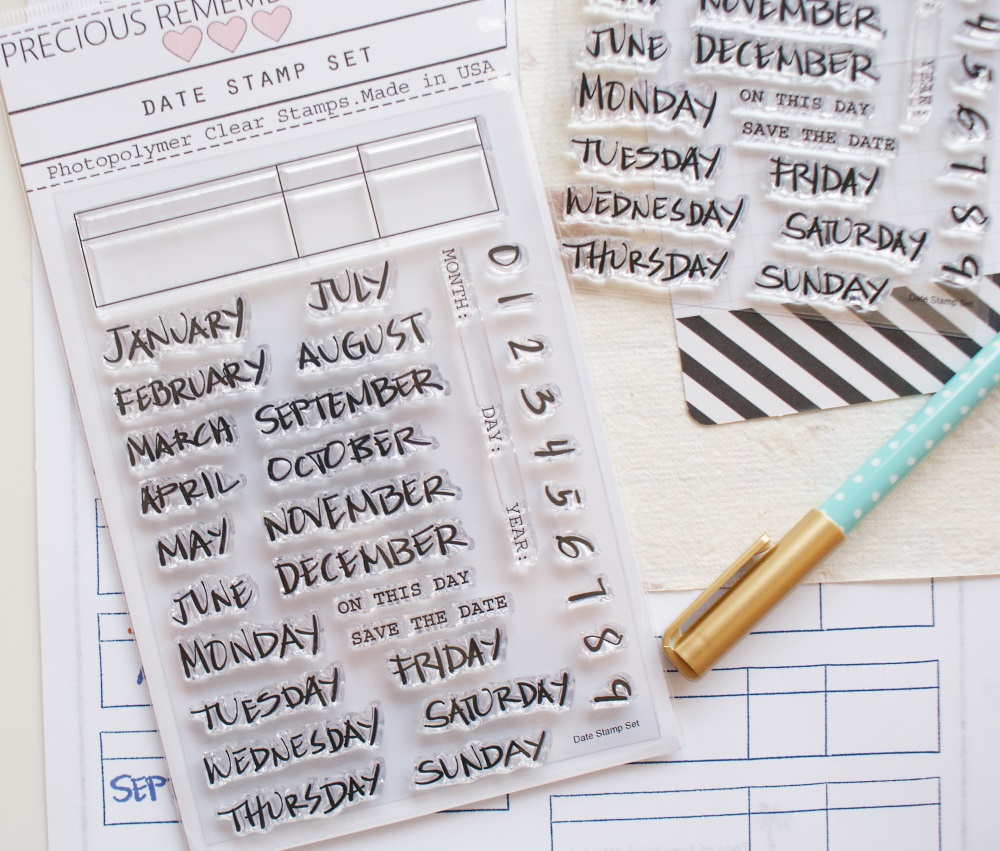 PRECIOUS
DATE STAMP SET
Photopolymer Clear Stamps.Made in USA
JANUARY
FEBRUARY
MARCH
APRIL
MAY
JUNE
JULY
AUGUST
SEPTEMBER
OCTOBER
NOVEMBER
DECEMBER
ON THIS DAY
SAVE THE DATE
MONDAY
TUESDAY
WEDNESDAY
THURSDAY
FRIDAY
SATURDAY
SUNDAY
MONTH:
DAY:
YEAR:
0
1
2
3
4
5
6
7
8
9
Date Stamp Set
NOVEMBER
JUNE
DECEMBER
MONDAY
ON THIS DAY
SAVE THE DATE
TUESDAY
FRIDAY
WEDNESDAY
SATURDAY
THURSDAY
SUNDAY
YEAR:
4
5
6
7
8
9
Date Stamp Set
SEP